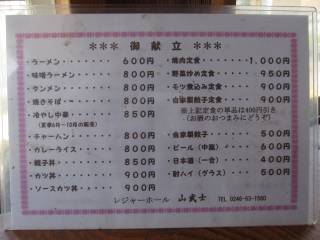 *** 御献立 ***
ラーメン・・・・・・・ 600円
味噌ラーメン・・・・・ 800円
タンメン・・・・・・・ 800円
焼きそば・・・・・・・ 800円
冷やし中華・・・・・・ 850円
(夏季6月～10月の販売)
チャーハン・・・・・・ 800円
カレーライス・・・・・ 800円
親子丼・・・・・・・・ 850円
カツ丼・・・・・・・・ 900円
ソースカツ丼・・・・・ 900円
焼肉定食・・・・・・ 1,000円
野菜炒め定食・・・・・ 950円
モツ煮込み定食・・・・ 900円
自家製餃子定食・・・・ 900円
※上記定食の単品は400円引き
(お酒のおつまみにどうぞ)
自家製餃子・・・・・・ 500円
ビール(中瓶)・・・・ 600円
日本酒(一合)・・・・ 400円
酎ハイ(グラス)・・・ 500円
レジャーホール 山武士 TEL 0246-63-1560